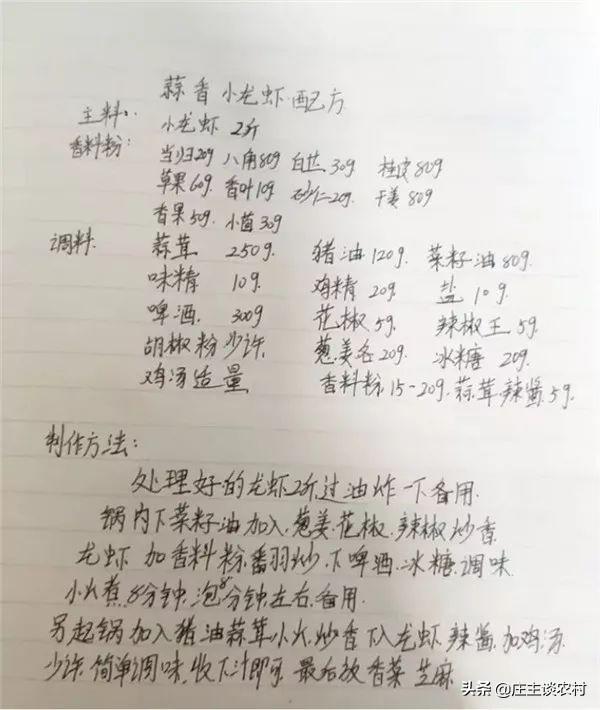 蒜香小龙虾配方
主料: 小龙虾 2斤
香料粉:
当归20g 八角80g 白芷30g 桂皮80g
草果60g. 香叶10g 砂仁20g. 干姜80g
香果50g. 小茴30g
调料. 蒜茸 250g. 猪油120g. 菜籽油80g.
味精 10g. 鸡精 20g. 盐 10g.
啤酒. 300g 花椒5g. 辣椒王5g.
胡椒粉少许. 葱姜各20g. 冰糖 20g.
鸡汤适量 香料粉.15-20g. 蒜茸.辣酱.5g.
制作方法:
处理好的龙虾2斤过油炸一下备用.
锅内下菜籽油加入.葱姜.花椒.辣椒炒香
龙虾加香料粉翻炒.下啤酒.冰糖.调味
小火煮.8分钟.泡8分钟左右.备用.
另起锅加入猪油蒜茸小火炒香下入龙虾.辣酱.加鸡汤
少许.简单调味.收下汁即可.最后放香菜芝麻.
头条 @庄主谈农村